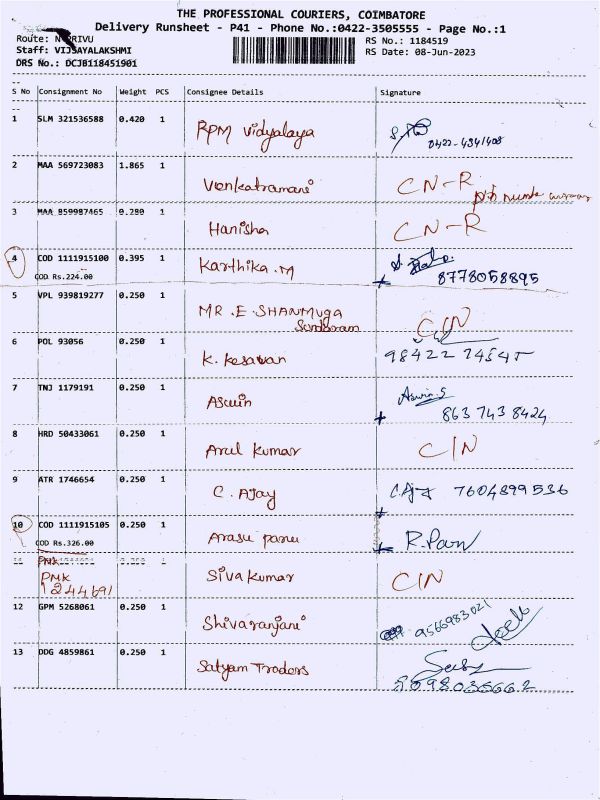 THE PROFESSIONAL COURIERS, COIMBATORE
Delivery Runsheet - P41 - Phone No.:0422-3505555 - Page No.:1
Route: PRIVU
RS No.: 1184519
Staff: VIJSAYALAKSHMI
RS Date: 08-Jun-2023
DRS No.: DCJB118451901
S No Consignment No Weight PCS Consignee Details Signature
1 SLM 321536588 0.420 1 RPM Vidyalaya 0422-4341408
2 MAA 569723083 1.865 1 Venkatramani CN-R
3 MAA 859987465 0.280 1 Hanisha CN-R
4 COD 1111915100 0.395 1 Karthika.M 8778058895
COD Rs.224.00
5 VPL 939819277 0.250 1 MR.E.SHANMUGA
Sundaram CIN
6 POL 93056 0.250 1 K. Kesavan
7 TNJ 1179191 0.250 1 Aswin Aswin.S
863 743 8424
8 HRD 50433061 0.250 1 Arul Kumar CIN
9 ATR 1746654 0.250 1 C. Ajay 7604899536
10 COD 1111915105 0.250 1 Arasu R.Parv
COD Rs.326.00
11 PMK 1244691 Siva Kumar CIN
12 GPM 5268061 0.250 1 Shivaranjani 9566983021
13 DDG 4859861 0.250 1 Satyam Traders